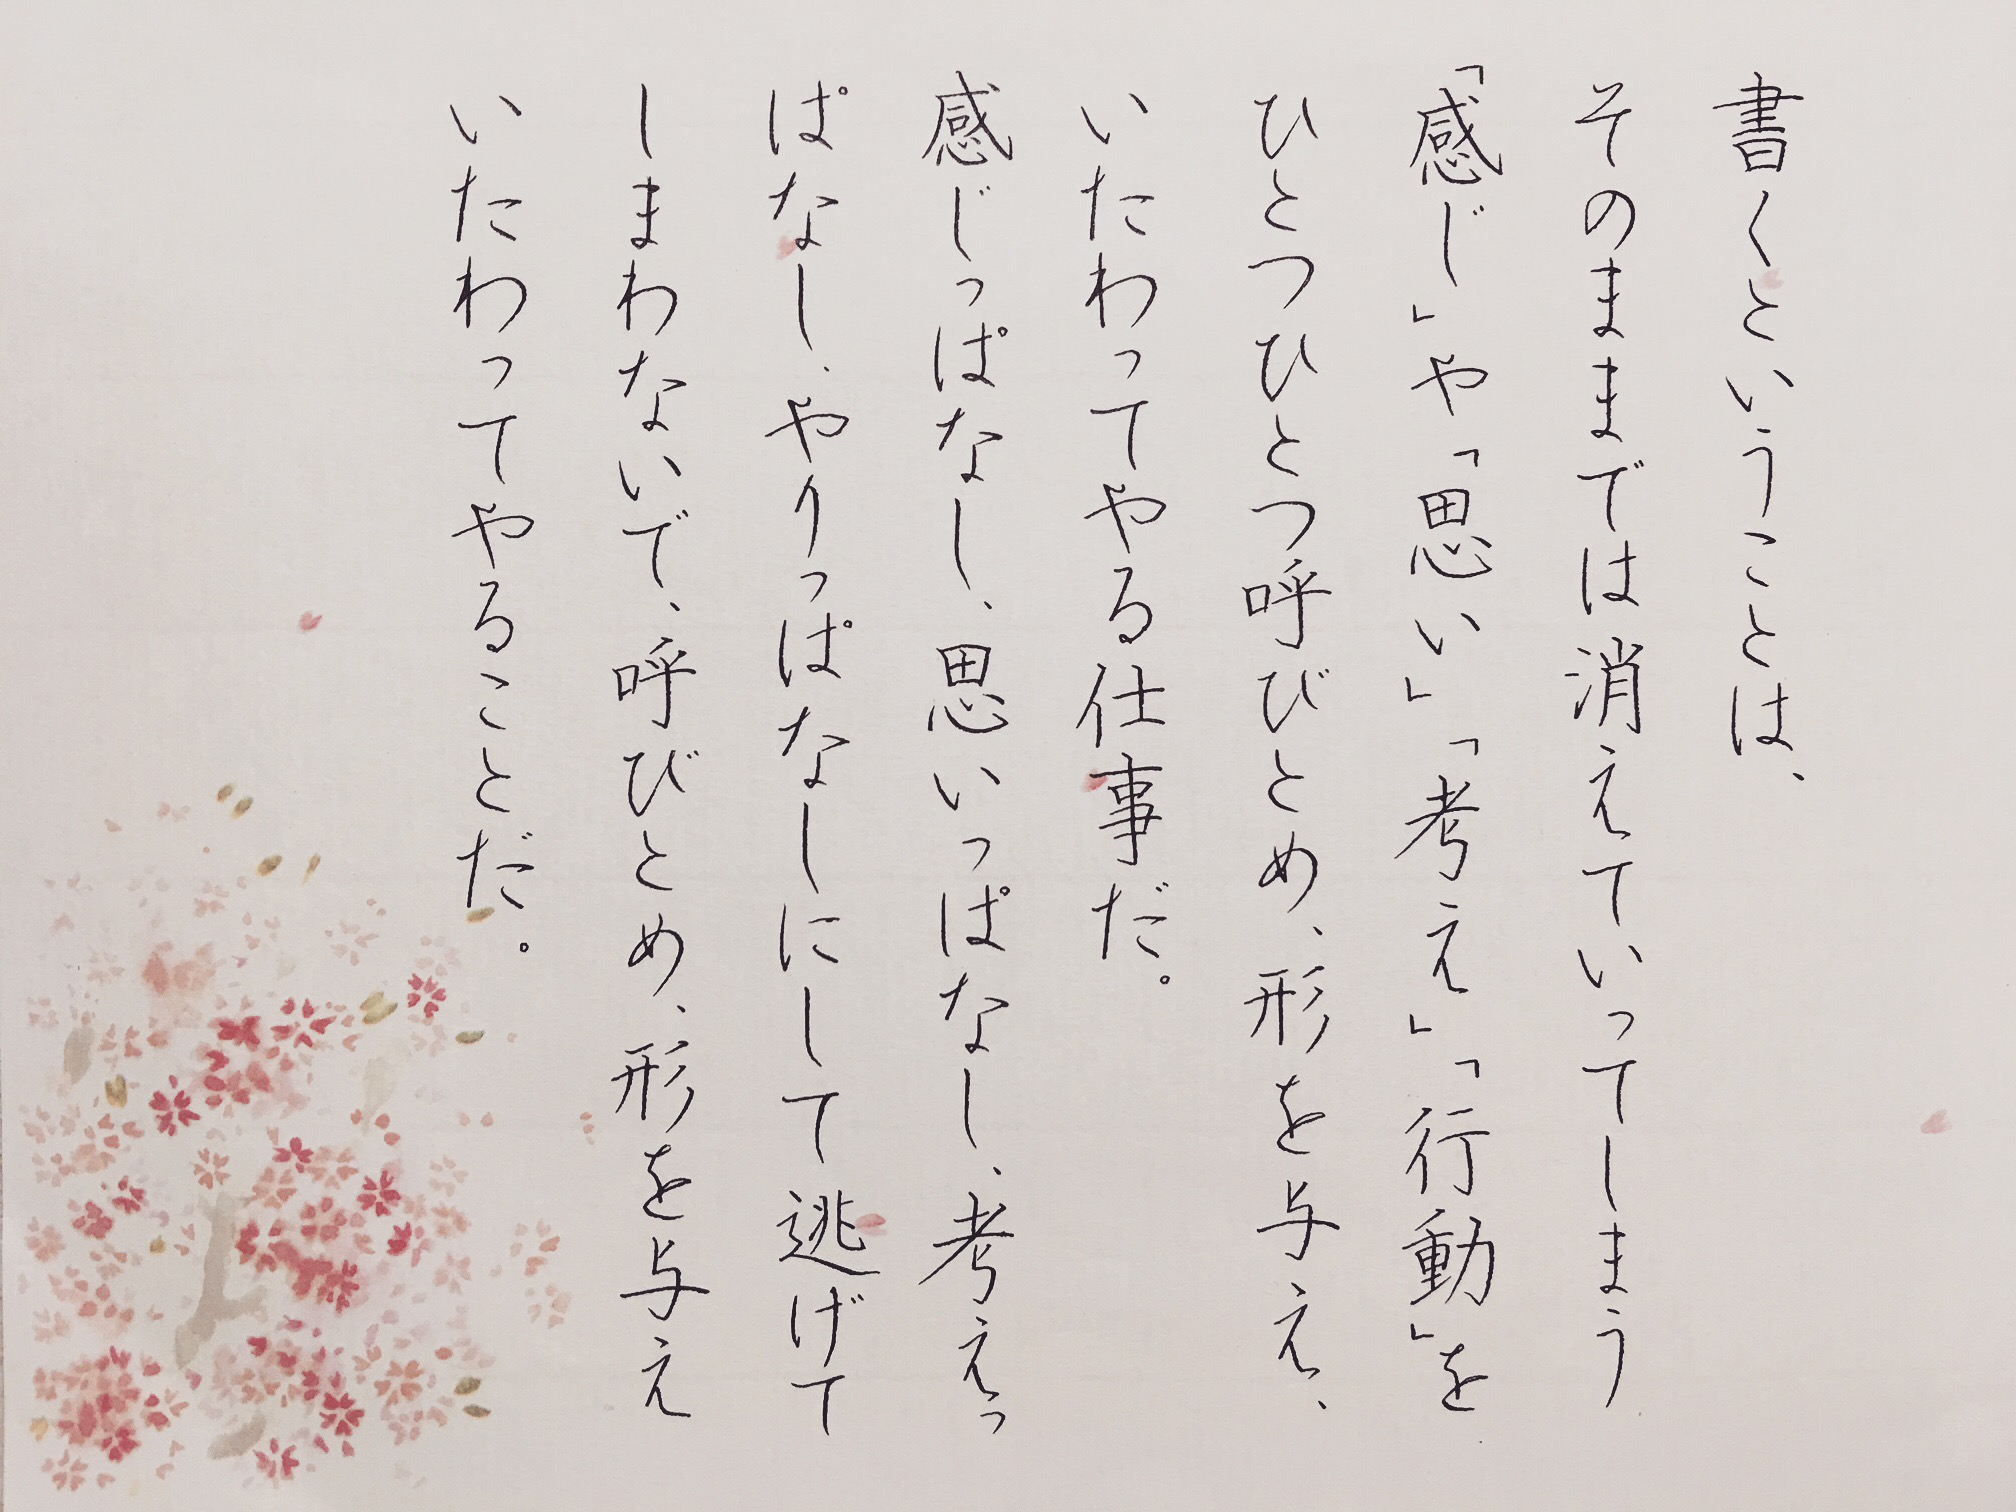 書くということは、
そのままでは消えていってしまう
「感じ」や「思い」「考え」「行動」を
ひとつひとつ呼びとめ、形を与え、
いたわってやる仕事だ。
感じっぱなし、思いっぱなし、考えっ
ぱなし、やりっぱなしにして逃げて
しまわないで、呼びとめ、形を与え
いたわってやることだ。